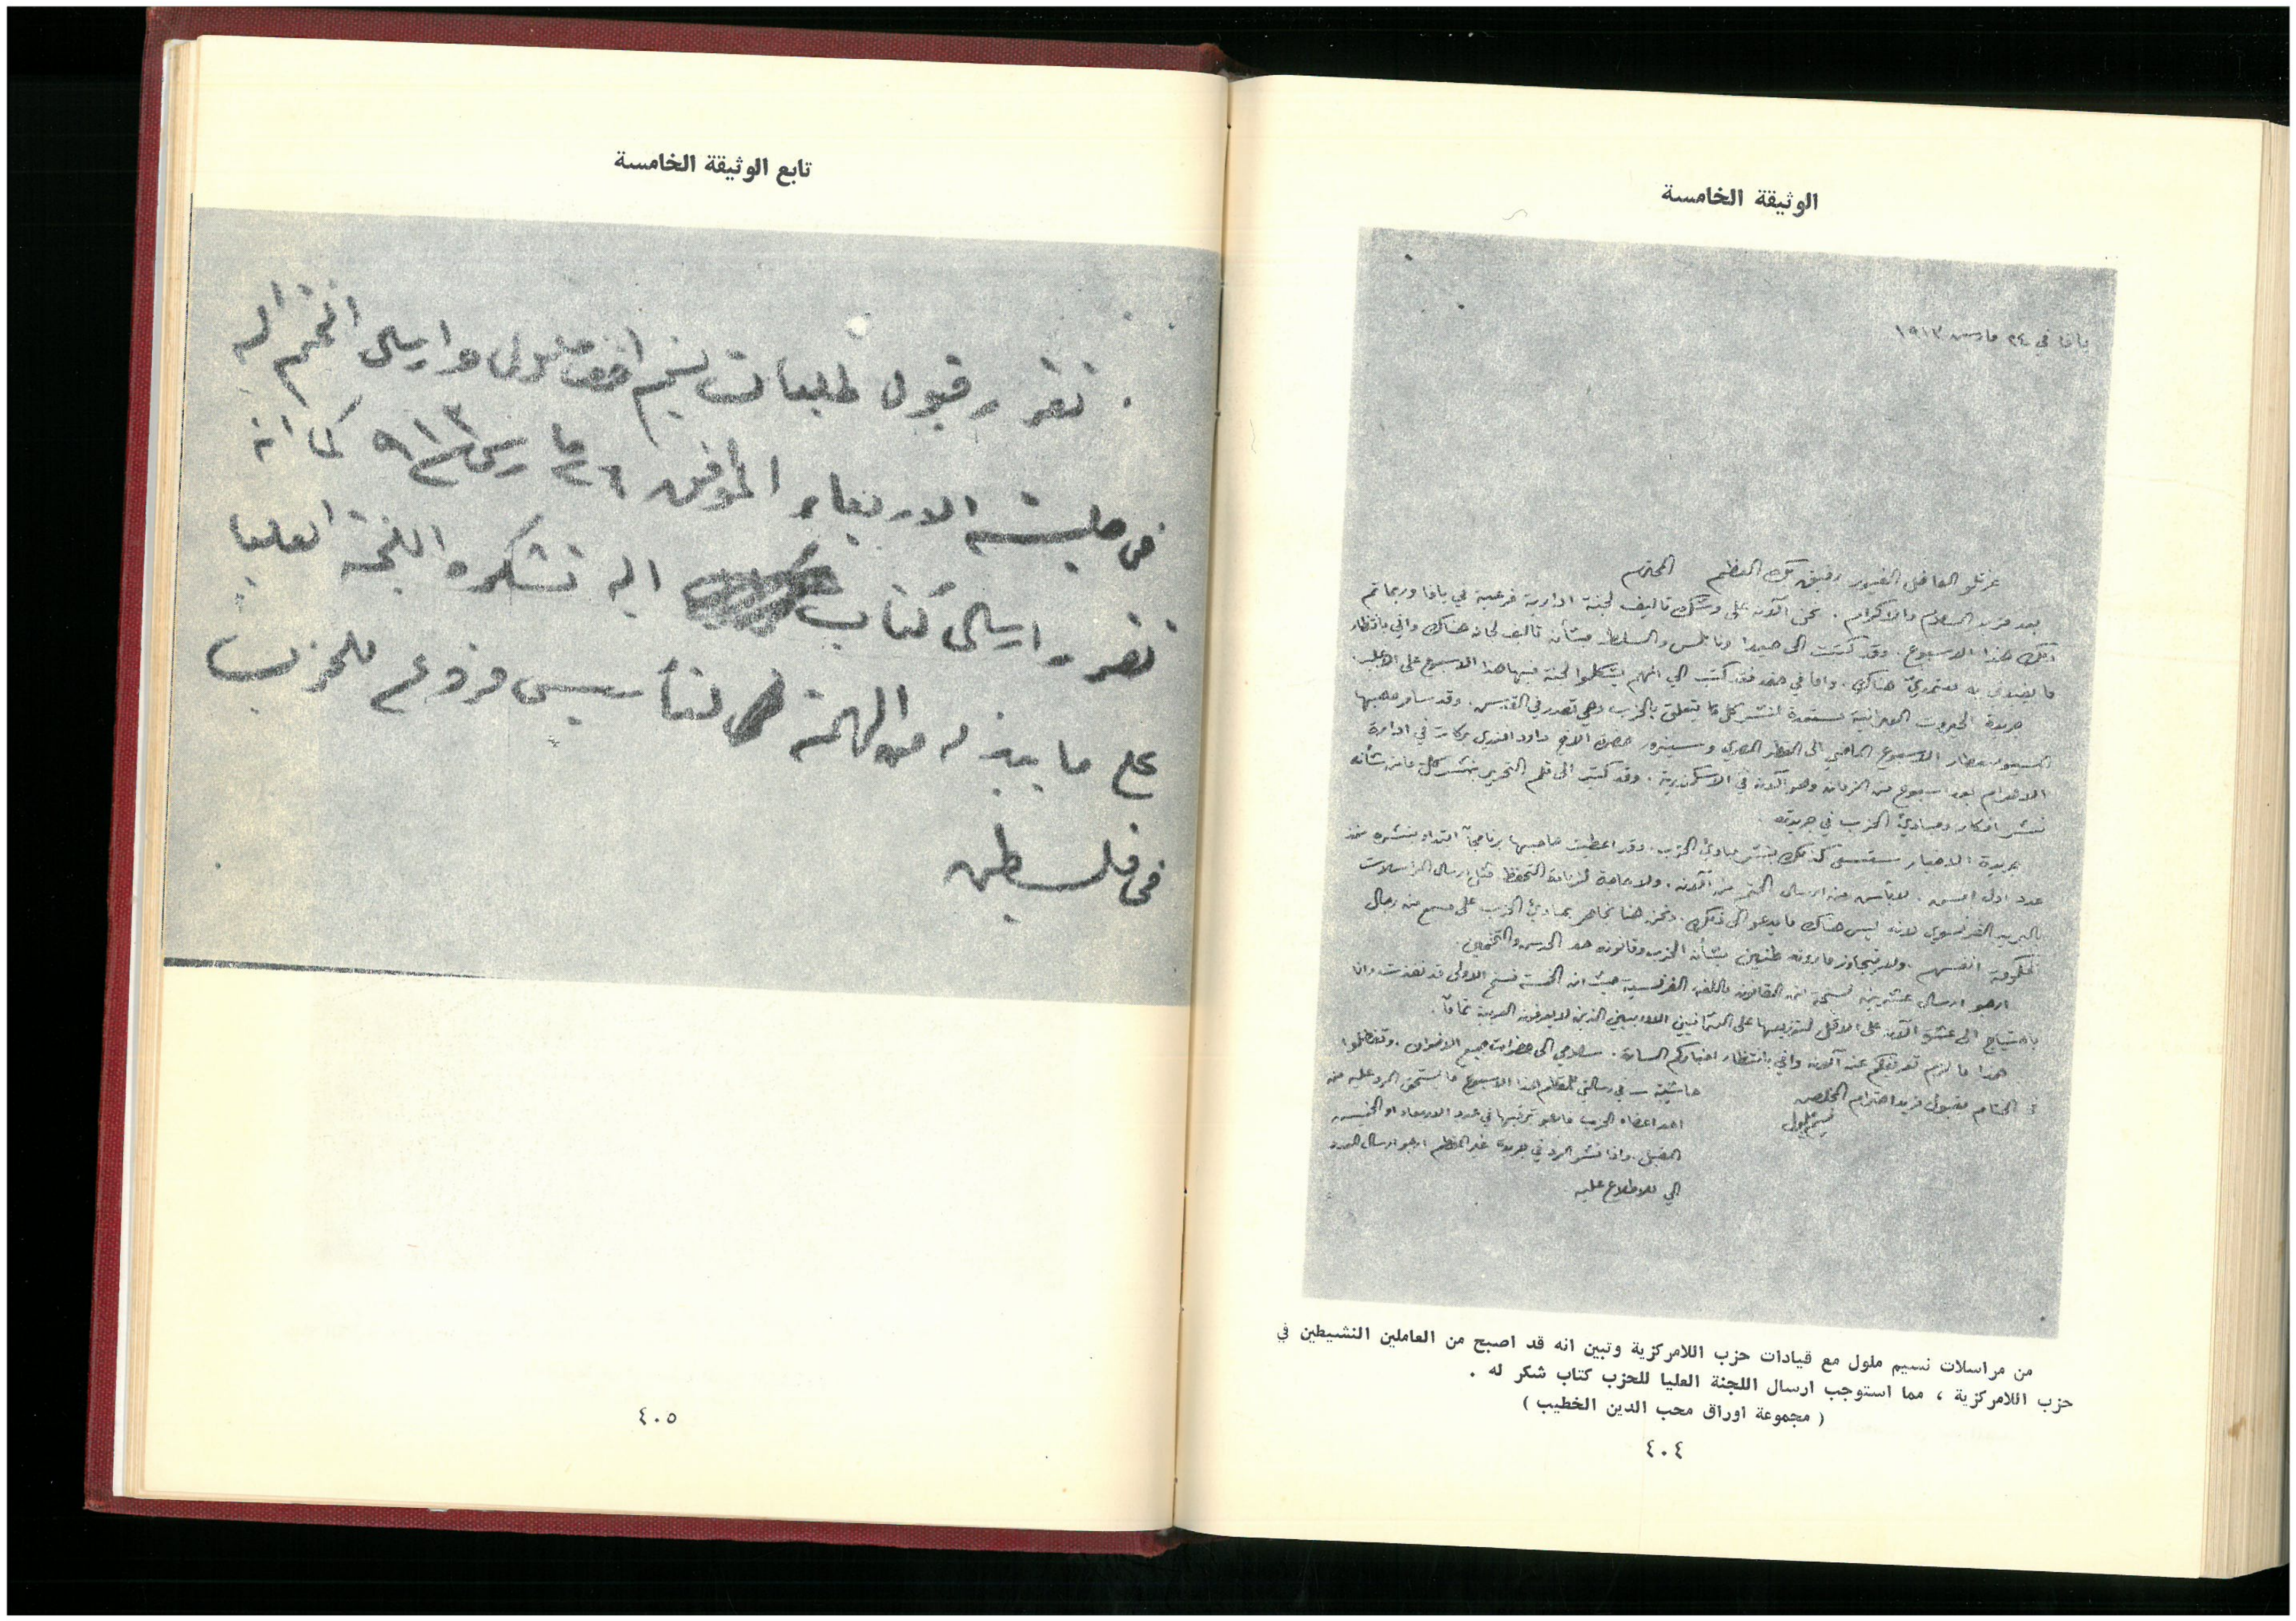 الوثيقة الخامسة
يافا في ٢٤ مارس ١٩١٣
عزتلو الفاضل الغيور رفيق بك العظم المحترم
بعد مزيد السلام والاكرام. نحن الآن على وشك تأليف لجنة ادارية فرعية في يافا وربما تم
ذلك هذا الاسبوع. وقد كتبت الى حيدا ونابلس والسلط بشأن تأليف لجان هناك واني بانتظار
هناك. واما في فقد كتب الي انهم يشكلوا لجنة فيها هذا الاسبوع على الاغلب.
جريدة الحيروت العبرانية مستعدة لنشر كل ما يتعلق بالحزب وهي تصدر في القدس. وقد سافر صاحبها
المسيو الاسبوع الماضي الى القطر المصري وسيزور حضرة الاخ داود افندي بركات في ادارة
الاهرام بعد اسبوع من الزمان وهو الآن في الاسكندرية. وقد كتب الى قلم التحرير بنشر كل ما من شأنه
نشر افكار ومبادئ الحزب في جريدته.
جريدة الاخبار كذلك بنشر مبادئ الحزب. وقد اعطيت صاحبها برنامجاً ابتدأ بنشره منذ
عدد اول امس. لا بأس من ارسال الختم من الآن. ولا حاجة لزيادة التحفظ مثل ارسال المراسلات
بالبريد الفرنسوي لانه ليس هناك ما يدعو الى ذلك. ونحن هنا نجاهر بمبادئ الحزب على مسمع من رجال
الحكومة انفسهم. ولا يتجاوز بشأن الحزب وقانونه حد الحدس والتخمين.
ارجو ارسال عشرين نسخة من القانون باللغة الفرنسية حيث ان الخمسة نسخ الاولى قد نفذت وانا
باحتياج الى عشرة الآن على الاقل لتوزيعها على العثمانيين الذين لا يعرفون العربية تماماً.
هذا ما لزم تعريفكم عنه الآن واني بانتظار اخباركم السارة. سلامي الى حضرات جميع الاخوان. وتفضلوا
في الختام بقبول مزيد احترام المخلص
نسيم ملول
حاشية ـ في رسالتي للمقطم هذا الاسبوع ما يستحق الرد عليه من
احد اعضاء الحزب في عدد الاربعاء او الخميس
المقبل. واذا نشر الرد في جريدة غير المقطم ارجو ارسال العدد
الي للاطلاع عليه
من مراسلات نسيم ملول مع قيادات حزب اللامركزية وتبين انه قد اصبح من العاملين النشيطين في
حزب اللامركزية ، مما استوجب ارسال اللجنة العليا للحزب كتاب شكر له .
( مجموعة اوراق محب الدين الخطيب )
٤٠٤
تابع الوثيقة الخامسة
تقرر قبول طلبات نسيم افندي ملول وارسال الختم اليه
في جلسة الاربعاء الموافق ٢٦ مارس ٩١٣ كما انه
تقرر ارسال كتاب اليه تشكره اللجنة العليا
على ما يبذله من الهمة لتأسيس فروع للحزب
في فلسطين
٤٠٥